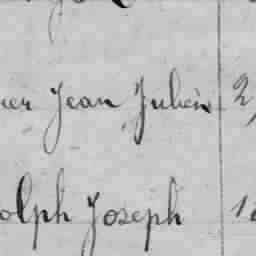 er Jean Julien 2
olph Joseph 1